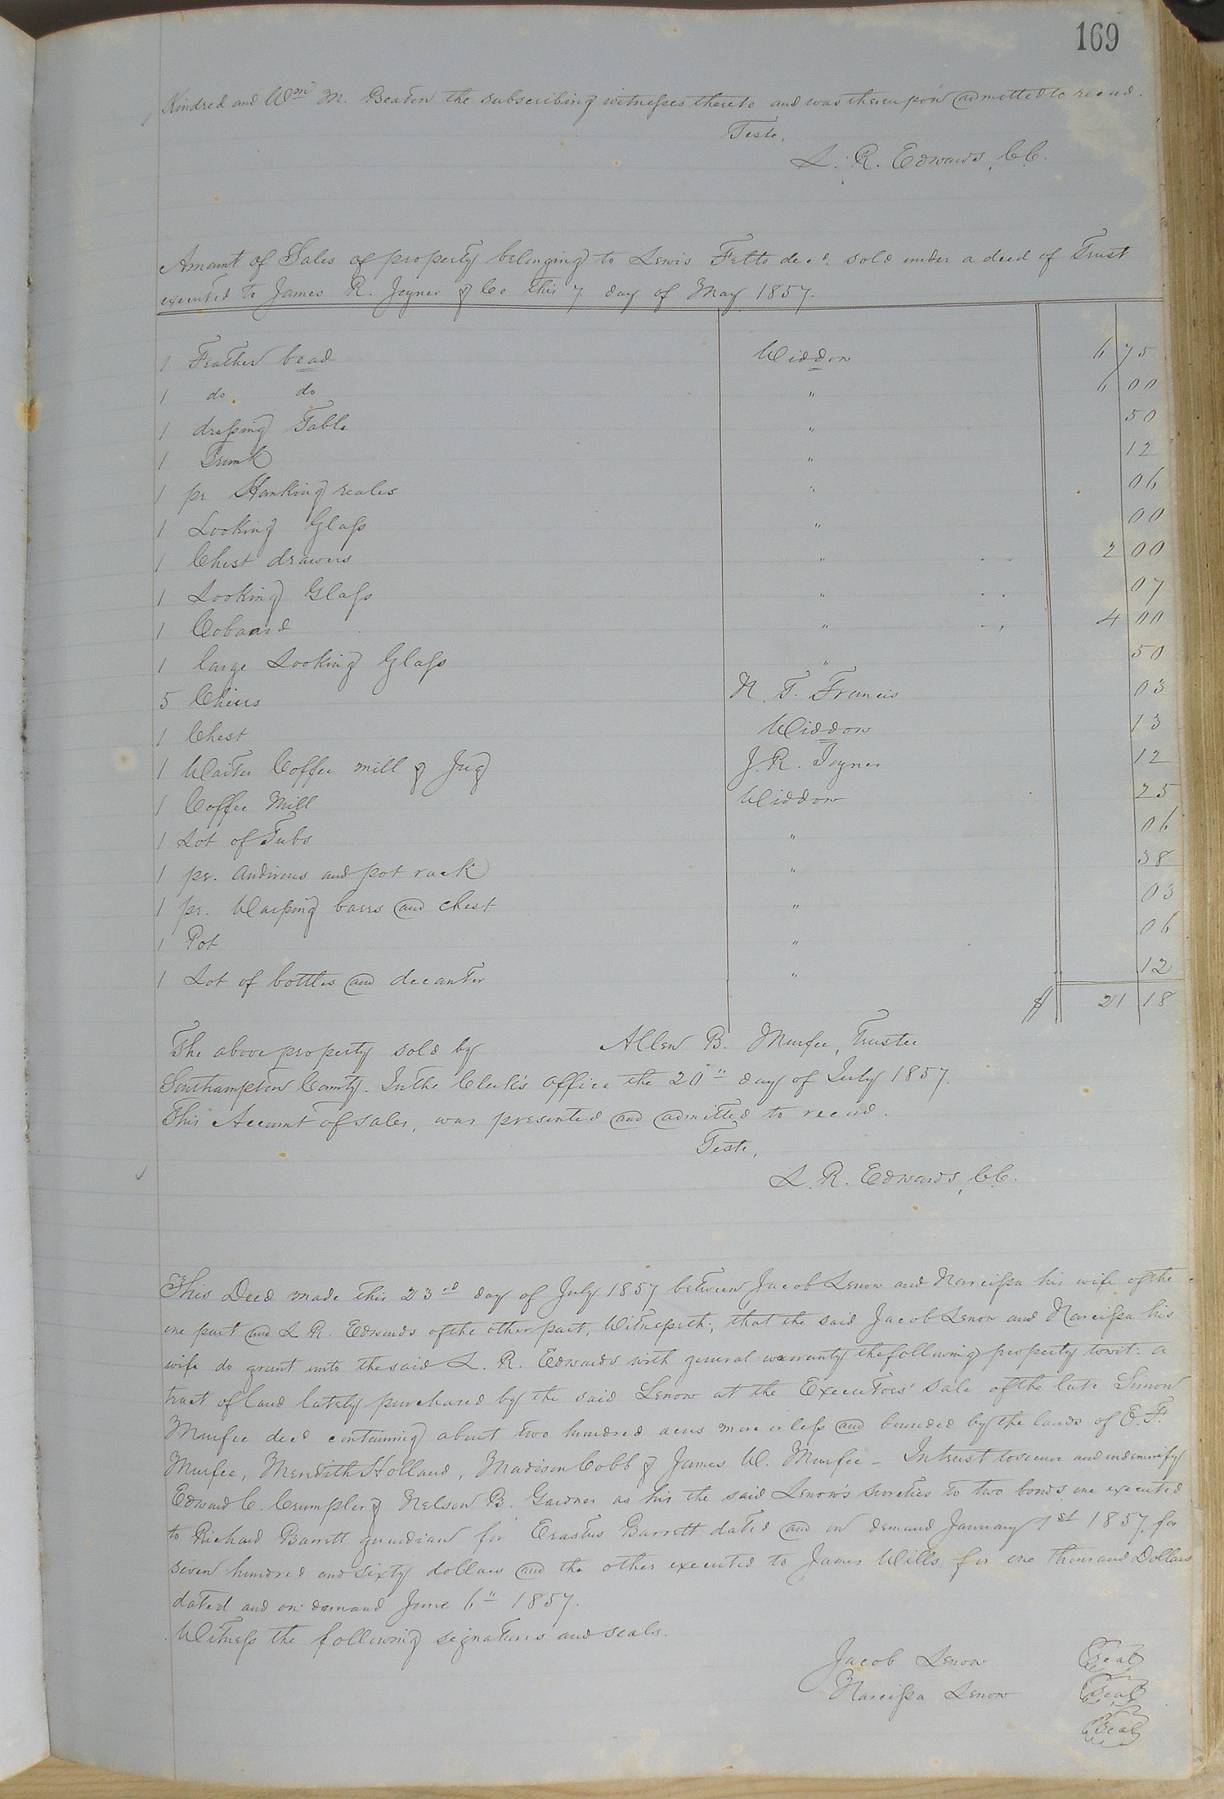 169
Kindred and Wm M. Beaton the subscribing witnesses thereto and was thereupon admitted to record.
Teste,
L. R. Edwards, C.C.
Amount of Sales of property belonging to Lewis Felts decd. sold under a deed of Trust
executed to James R. Joyner & Co this 7 day of May 1857.
1 Feather bead Widdow 6 75
1 do. do " 6 00
1 dressing Table " 50
1 Trunk " 12
1 pr. " 06
1 Looking Glass " 00
1 Chest drawers " 2 00
1 Looking Glass " 07
1 Cobaard " 4 00
1 large Looking Glass " 50
5 Chiers N. T. Francis 03
1 Chest Widdow 13
1 Waiter Coffee mill & Jug J. R. Joyner 12
1 Coffee Mill Widdow 25
1 Lot of Tubs " 06
1 pr. andirons and pot rack " 38
1 pr. Warping barrs and chest " 03
1 Pot " 06
1 Lot of bottles and decanter " 12
$ 21 18
The above property sold by Allen B. Murfee, Trustee
Southampton County. In the Clerk's Office the 20" day of July 1857.
This Account of sales, was presented and admitted to record.
Teste,
L. R. Edwards, C.C.
This Deed made this 23rd day of July 1857 between Jacob Lenow and Narcissa his wife of the
one part and L R. Edwards of the other part, Witnesseth; that the said Jacob Lenow and Narcissa his
wife do grant unto the said L. R. Edwards with general warranty the following property towit: a
tract of land lately purchased by the said Lenow at the Executors' Sale of the late Simon
Murfee decd containing about two hundred acres more or less and bounded by the lands of E. F.
Murfee, Meridith Holland, Madison Cobb & James W. Murfee - In trust to secure and indemnify
Edward C. Crumpler & Nelson B. Gardner as his the said Lenow's sureties to two bonds one executed
to Richard Barrett guardian for Erastus Barrett dated and on demand January 1st 1857, for
seven hundred and sixty dollars and the other executed to James Wills for one thousand Dollars
dated and on demand June 6" 1857.
Witness the following signatures and seals.
Jacob Lenow Seal
Narcissa Lenow Seal
Seal